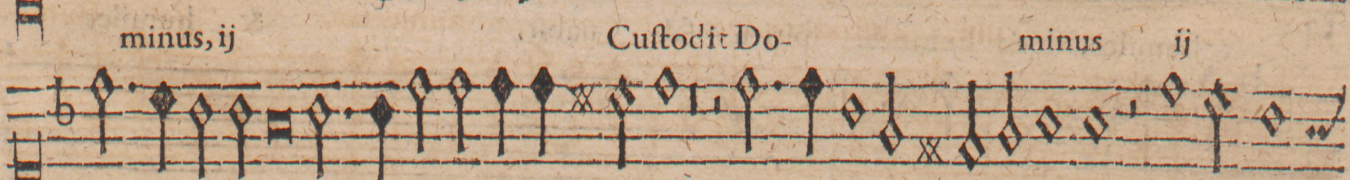 minus, ij Cuſtodit Do- minus ij